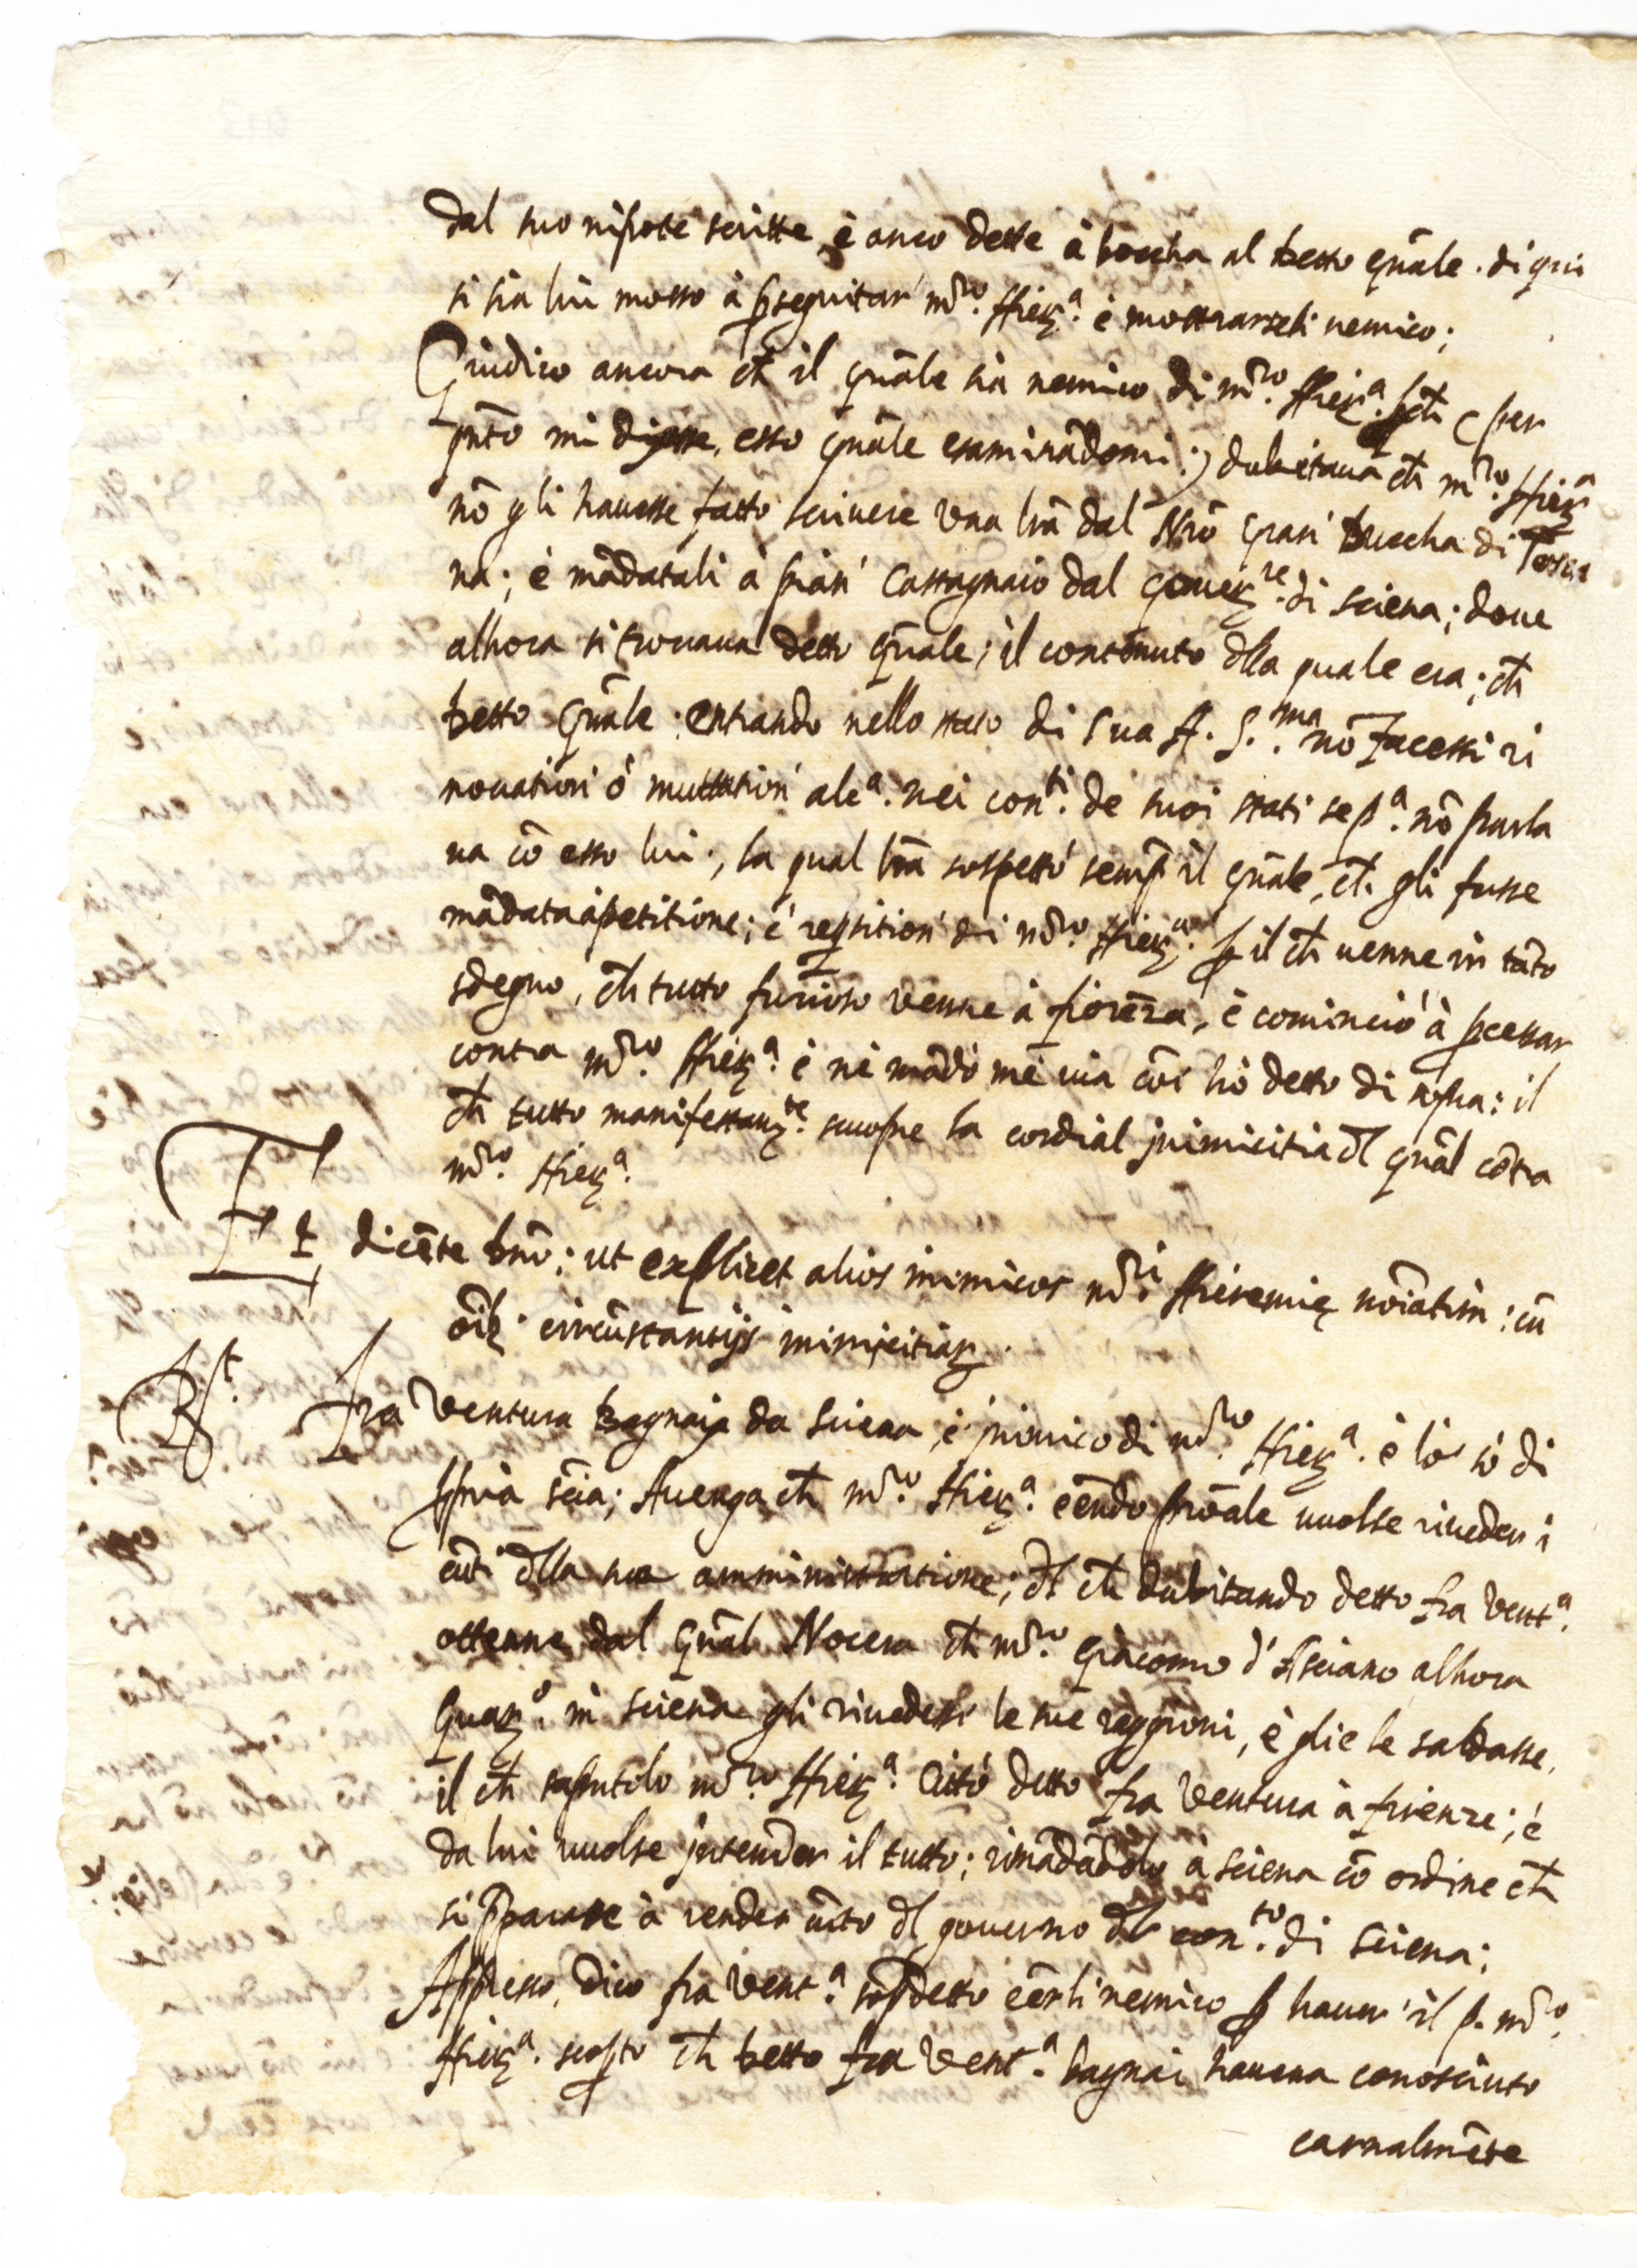 dal suo nipote scritte è anco dette à boccha al detto gn̄ale. di qui
si sia lui mosso à ꝑseguitar' m̃ro. Hierᵃ. è mostrarseli nemico;
Giudico ancora ch̄ il gn̄ale sia nemico di m̃ro. Hierᵃ. ch̄ (per
q̄nto mi disse, esso gn̄ale esaminādomi:) dubitaua ch̄ m̃ro. Hierᵃ
nō gli hauesse fatto scriuere vna lr̄a dal Nr̄o Gran' Duccha di Tosca
na; è mādatali à pian' Castagnaio dal Gouerʳᵉ. di sciena; doue
alhora si trouaua detto gn̄ale; il contenuto d̄lla quale era; ch̄
detto Gn̄ale entrando nello stato di sua A. S.ᵐᵃ nō facessi ri
nouationi ò muttationi alcᵃ. nei conᵗⁱ. de suoi stati se pᵃ. nō parla
ua cō esso lui., la qual lr̄a sospettò semꝑ il gn̄ale, ch̄ gli fusse
mādata à petitione; è reqsitioni di m̃ro. Hierᵃ. ꝑ il ch̄ uenne in tāto
sdegno, ch̄ tutto furioso venne à fiorēza, è cominciò à ꝓcessar
contra m̃ro. Hierᵃ. è ne mādò me uia cōe hò detto di sopra: il
ch̄ tutto manifestamᵗᵉ. scuopre la cordial jnimicitia d̄l gn̄al cōtra
m̃ro. Hierᵃ.
Et dicēte dn̄o; ut explicet alios inimicos m̃ri Hieremię noīatim: cū
oīb. circūstantijs inimicitiaꝝ.
Rᵗ. Fra Ventura Bagnaia da sciena, è jnimico di m̃ro. Hierᵃ. è lo sò di
ꝓpria sciā; Auenga ch̄ m̃ro. Hierᵃ. eēndo pro͞ale uuolse riueder i
cōti d̄lla sua amministratione; d̄l ch̄ dubitando detto fra Ventᵃ.
ottenne dal Gn̄al Nocera ch̄ m̃ro. Giacomo d'Asciano alhora
Guarᵒ. in sciena gli riuedessi le sue raggioni, è glie le saldasse,
il ch̄ saputolo m̃ro. Hierᵃ. Cittò detto fra Ventura à firenze; è
da lui uuolse jntender il tutto; rimādādolo à sciena cō ordine ch̄
si p̄parasse à render cōto d̄l gouerno d̄l conᵗᵒ. di sciena;
Appresso, dico fra Ventᵃ. sopdetto eērli nemico ꝑ hauer' il p. m̃ro.
Hierᵃ. scopto ch̄ detto fra Ventᵃ. bagnai haueua conosciuto
carnalmēte